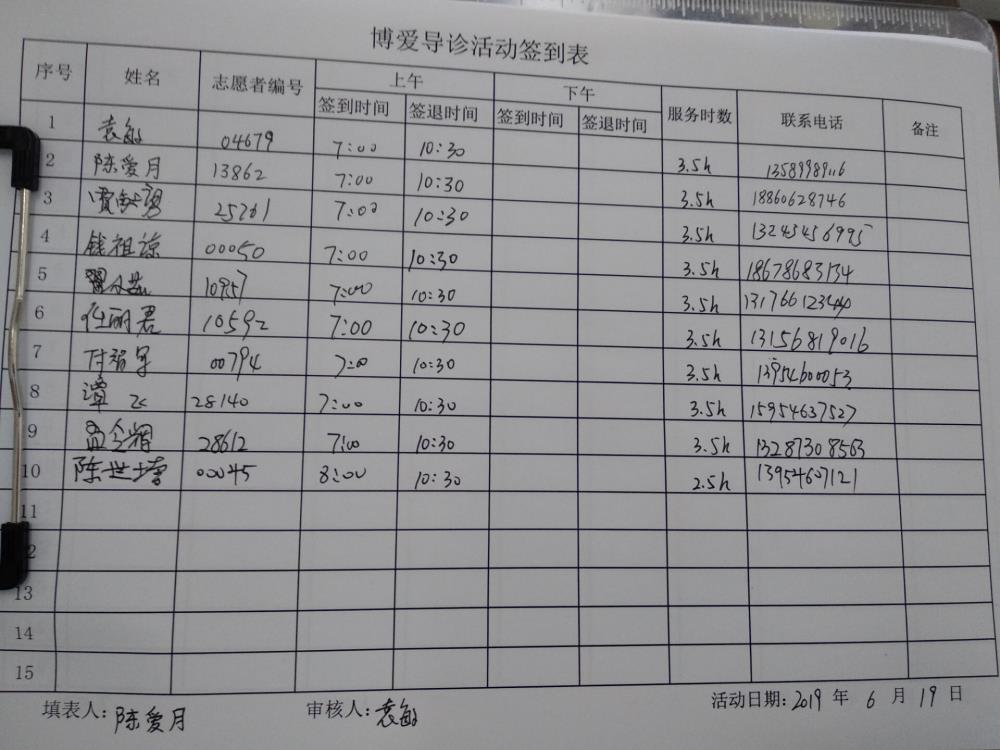 博爱导诊活动签到表
序号 姓名 志愿者编号 上午 下午 服务时数 联系电话 备注
签到时间 签退时间 签到时间 签退时间
1 袁敏 04679 7:00 10:30 3.5h
2 陈爱月 13862 7:00 10:30 3.5h 18860628746
3 25761 7:00 10:30 3.5h 13245456995
4 钱祖谅 00050 7:00 10:30 3.5h 18678683134
5 10957 7:00 10:30 3.5h 13176612344
6 任丽君 10592 7:00 10:30 3.5h 13156819016
7 付智军 00794 7:00 10:30 3.5h 13954600053
8 谭飞 28140 7:00 10:30 3.5h 15954637527
9 孟令辉 28612 7:00 10:30 3.5h 13287308563
10 陈世增 00045 8:00 10:30 2.5h 13954607121
11
12
13
14
15
填表人:陈爱月 审核人:袁敏 活动日期:2019 年 6 月 19 日